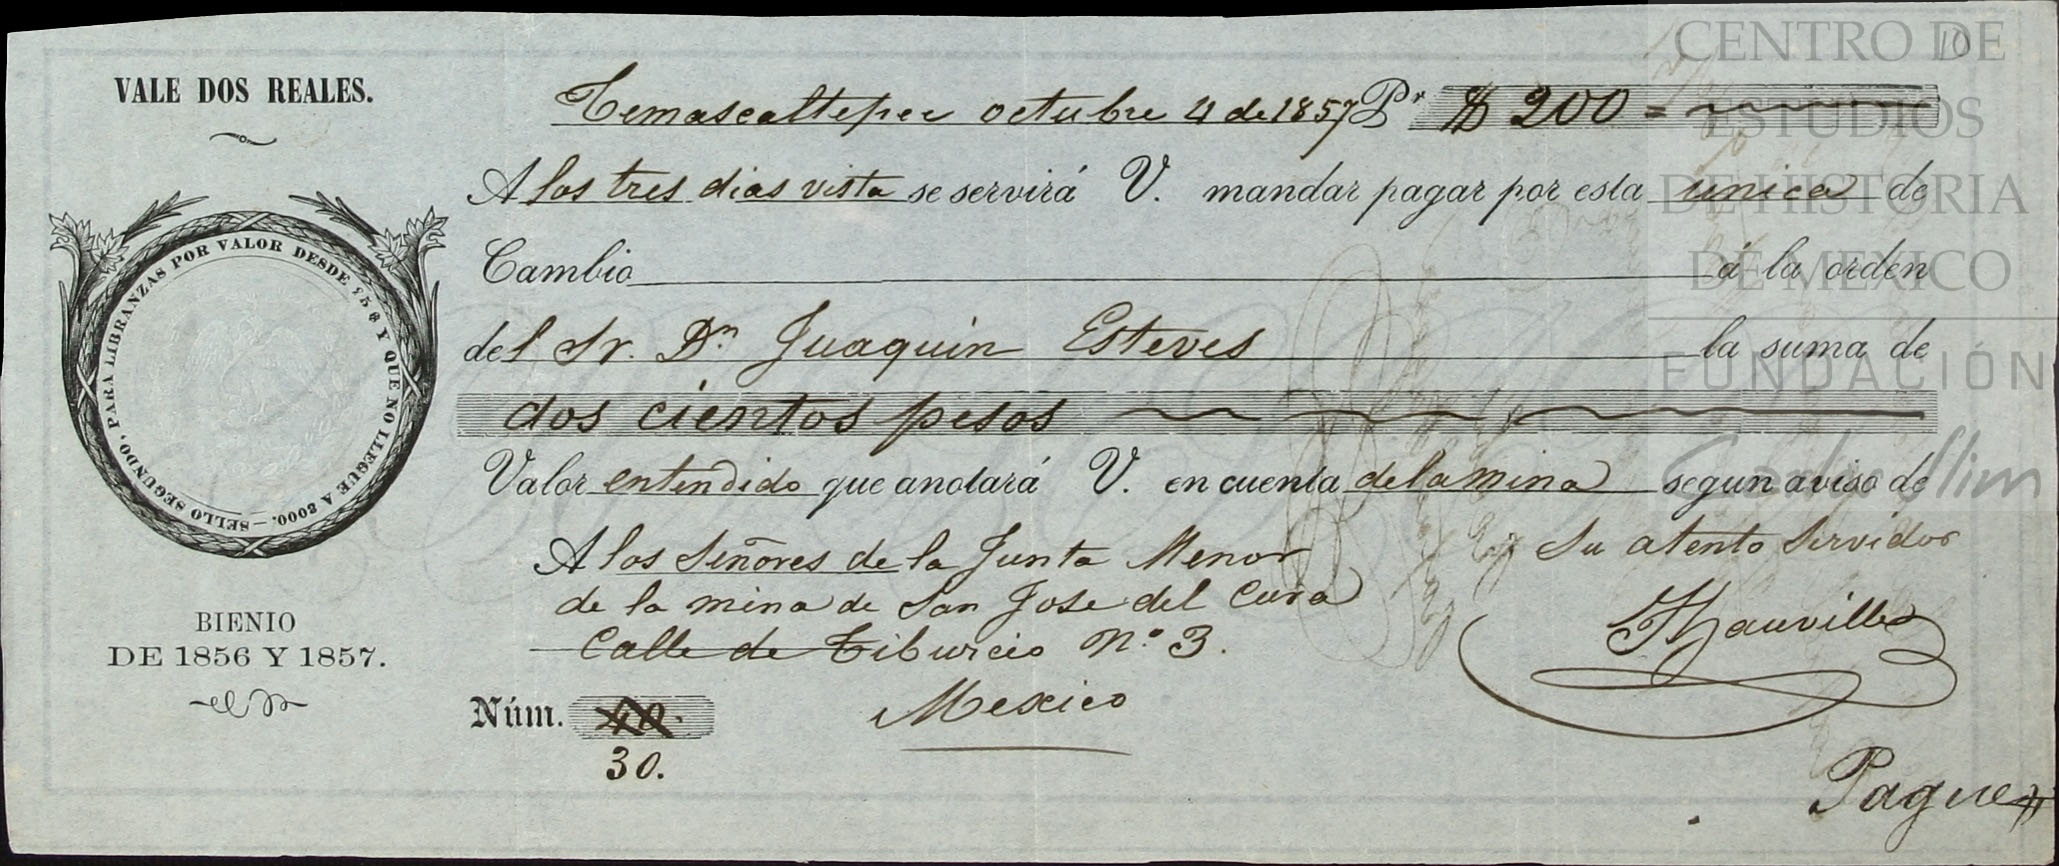 VALE DOS REALES.
PARA LIBRANZAS POR VALOR DESDE 256 Y QUE NO LLEGUE A 2000.—SELLO SEGUNDO,
BIENIO
DE 1856 Y 1857.
10
Temascaltepec octubre 4 de 1857 Pr $ 200 =
A los tres dias vista se servirá V. mandar pagar por esta unica de
Cambio á la orden
del Sr. Dn Juaquin Esteves la suma de
dos cientos pesos
Valor entendido que anotará V. en cuenta de la mina segun aviso de
Su atento Servidor
A los Señores de la Junta Menor
de la mina de San Jose del Cura
Calle de Tiburcio No. 3.
Mexico
Núm. 40.
30.
Pague
CENTRO DE
ESTUDIOS
DE HISTORIA
DE MEXICO
FUNDACIÓN
Carlos Slim